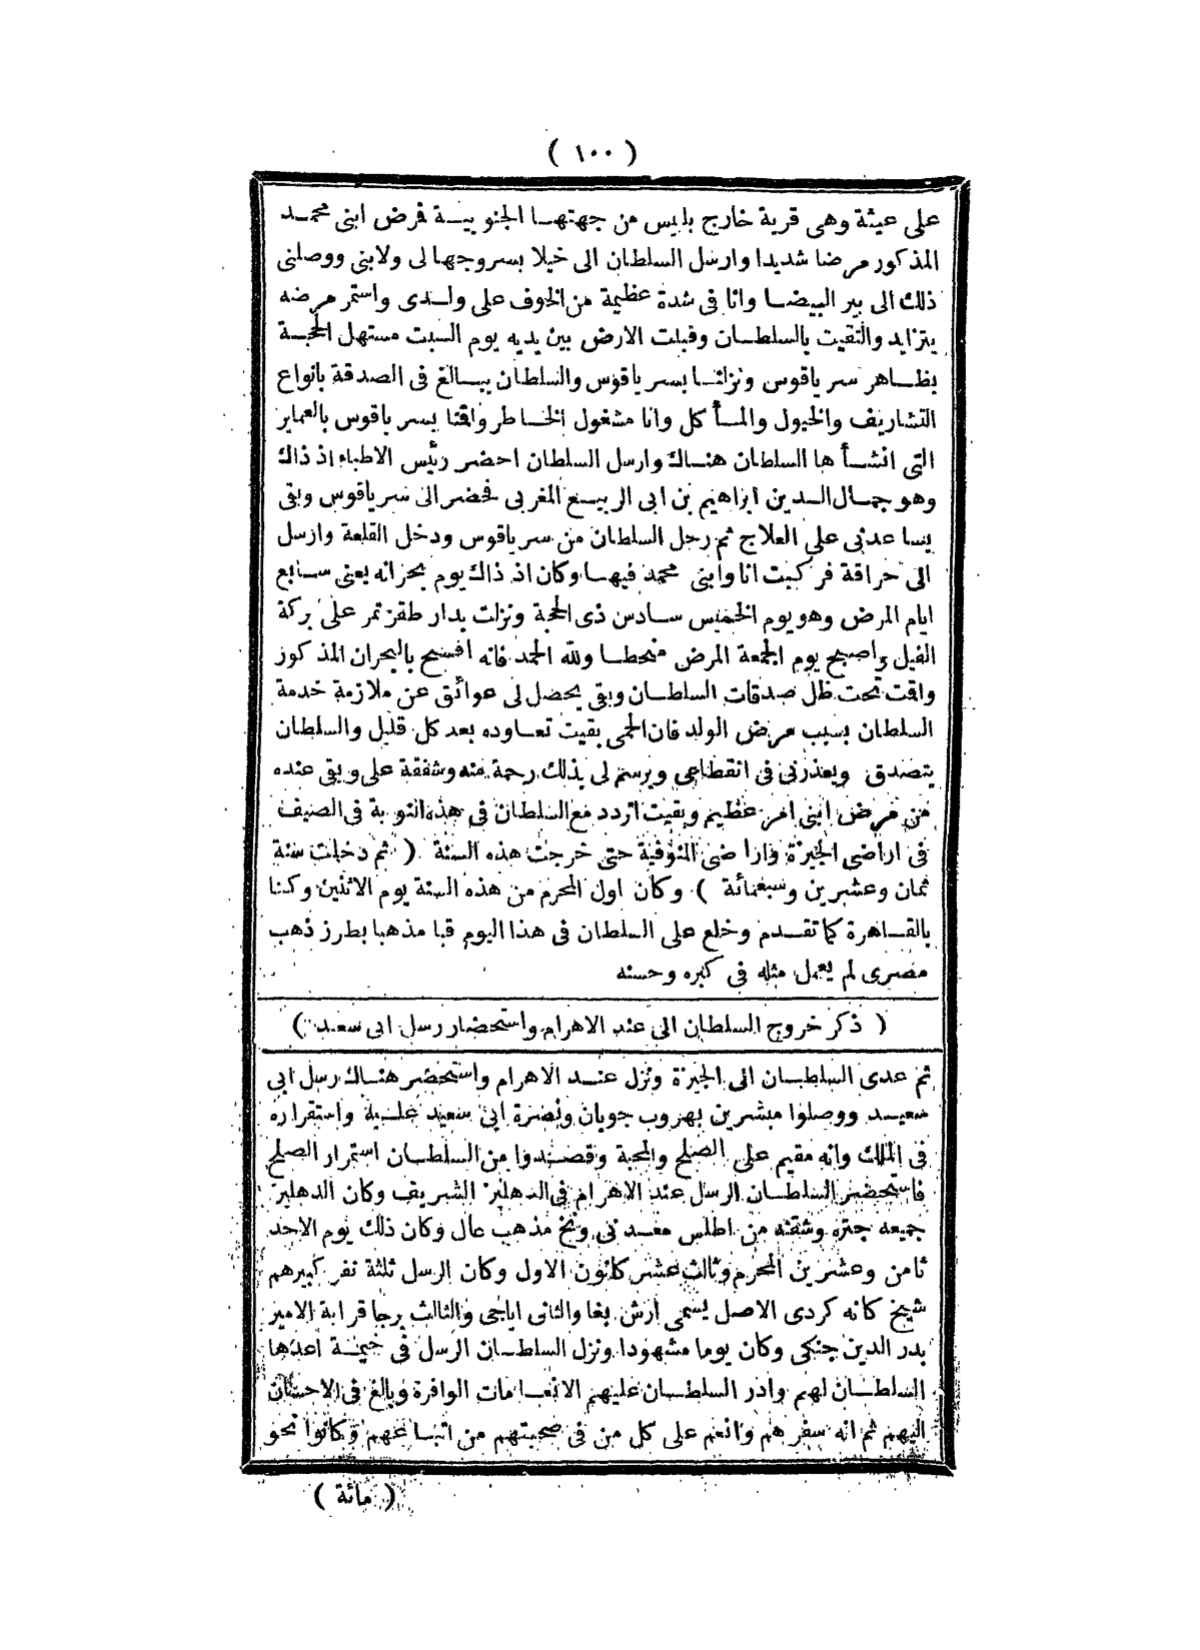 ( ١٠٠ )
على عيثة وهى قرية خارج بلبيس من جهتها الجنوبية فرض ابنى محمد
المذكور مرضا شديدا وارسل السلطان الى خيلا بسروجها لى ولابنى ووصلنى
ذلك الى بير البيضا وانا فى شدة عظيمة من الخوف على ولدى واستمر مرضه
يتزايد والتقيت بالسلطان وقبلت الارض بين يديه يوم السبت مستهل الحجة
بظاهر سرياقوس ونزلنا بسرياقوس والسلطان يبالغ فى الصدقة بانواع
التشاريف والخيول والمأكل وانا مشغول الخاطر واقنا بسرياقوس بالعماير
التى انشأها السلطان هناك وارسل السلطان احضر رئيس الاطباء اذ ذاك
وهو جمال الدين ابراهيم بن ابى الربيع المغربى فحضر الى سرياقوس وبقى
يساعدنى على العلاج ثم رحل السلطان من سرياقوس ودخل القلعة وارسل
الى حراقة فركبت انا وابنى محمد فيها وكان اذ ذاك يوم بحرانه يعنى سابع
ايام المرض وهو يوم الخميس سادس ذى الحجة ونزلت بدار طقزتمر على بركة
الفيل واصبح يوم الجمعة المرض منحطا ولله الحمد فانه افسح بالبحران المذكور
واقت تحت ظل صدقات السلطان وبقى يحضل لى عوائق عن ملازمة خدمة
السلطان بسبب مرض الولد فان الحمى بقيت تعاوده بعد كل قليل والسلطان
يتصدق ويعذرنى فى انقطاعى ويرسم لى بذلك رحمة منه وشفقة على وبقى عنده
من مرض ابنى امر عظيم وبقيت اتردد مع السلطان فى هذه النوبة فى الصيف
فى اراضى الجيزة واراضى المنوفية حتى خرجت هذه السنة ( ثم دخلت سنة
ثمان وعشرين وسبعمائة ) وكان اول المحرم من هذه السنة يوم الاثنين وكنا
بالقاهرة كما تقدم وخلع على السلطان فى هذا اليوم قبا مذهبا بطرز ذهب
مصرى لم يعمل مثله فى كبره وحسنه
( ذكر خروج السلطان الى عند الاهرام واستحضار رسل ابى سعيد )
ثم عدى السلطان الى الجيزة ونزل عند الاهرام واستحضر هناك رسل ابى
سعيد ووصلوا مبشرين بهروب جوبان ونصرة ابى سعيد عليه واستقراره
فى الملك وانه مقيم على الصلح والمحبة وقصدوا من السلطان استمرار الصلح
فاستحضر السلطان الرسل عند الاهرام فى الدهليز الشريف وكان الدهليز
جميعه جتره وشقته من اطلس معدنى ونخ مذهب عال وكان ذلك يوم الاحد
ثامن وعشرين المحرم وثالث عشر كانون الاول وكان الرسل ثلثة نفر كبيرهم
شيخ كانه كردى الاصل يسمى ارش بغا والثانى اياجى والثالث برجا قرابة الامير
بدر الدين جنكى وكان يوما مشهودا ونزل السلطان الرسل فى خيمة اعدها
السلطان لهم وادر السلطان عليهم الانعامات الوافرة وبالغ فى الاحسان
اليهم ثم انه سفرهم وانعم على كل من فى صحبتهم من اتباعهم وكانوا نحو
( مائة )